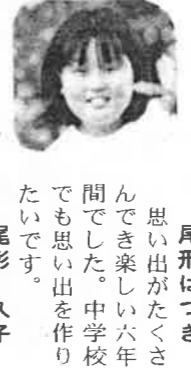 思い出がたくさ
んでき楽しい六年
間でした。中学校
でも思い出を作り
たいです。